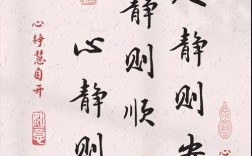 静则安
静则顺
心静则
心静慧自开
心